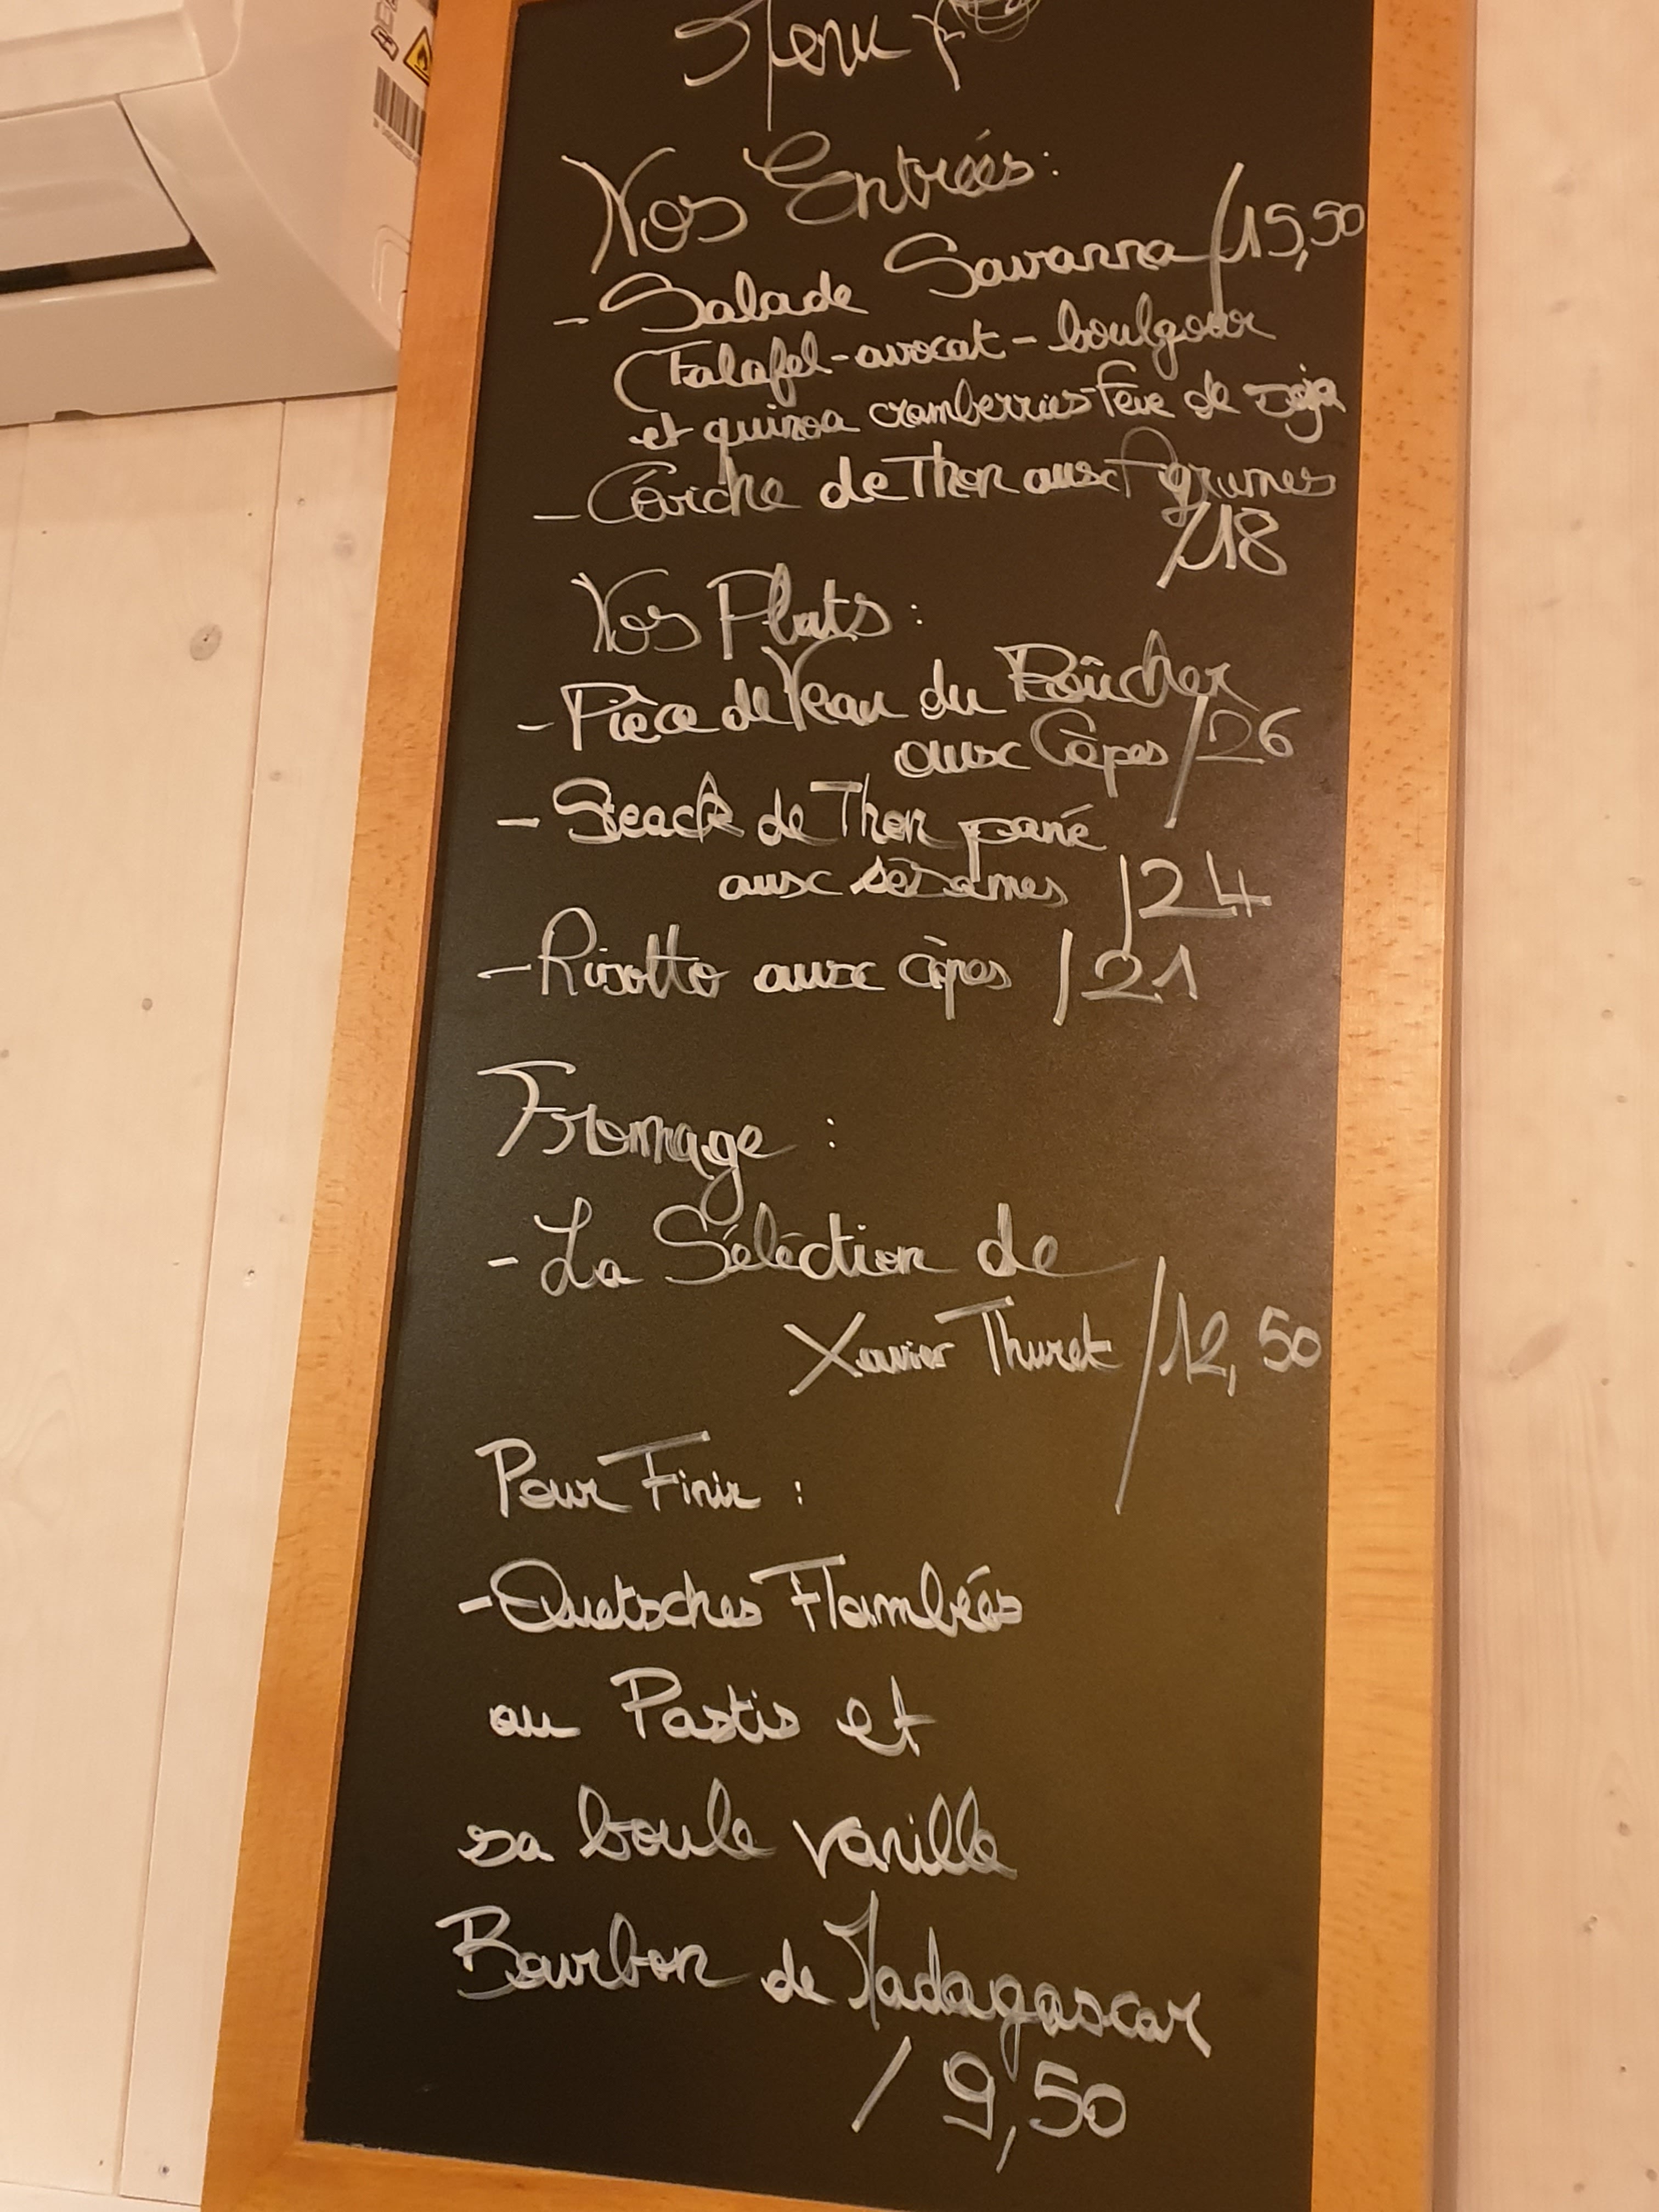 Menu
Nos Entrées:
- Salade Savanna /15,50
(Falafel-avocat-boulgour
et quinoa cramberries-Fève de soja
- Céviche de Thon aux Agrumes
/18
Nos Plats:
- Pièce de Veau du Boûcher
aux Cèpes /26
- Steack de Thon pané
aux sésames /24
- Risotto aux cèpes /21
Fromage :
- La Séléction de
Xavier Thuret /12,50
Pour Finir :
- Quetsches Flambées
au Pastis et
sa boule vanille
Bourbon de Madagascar
/9,50